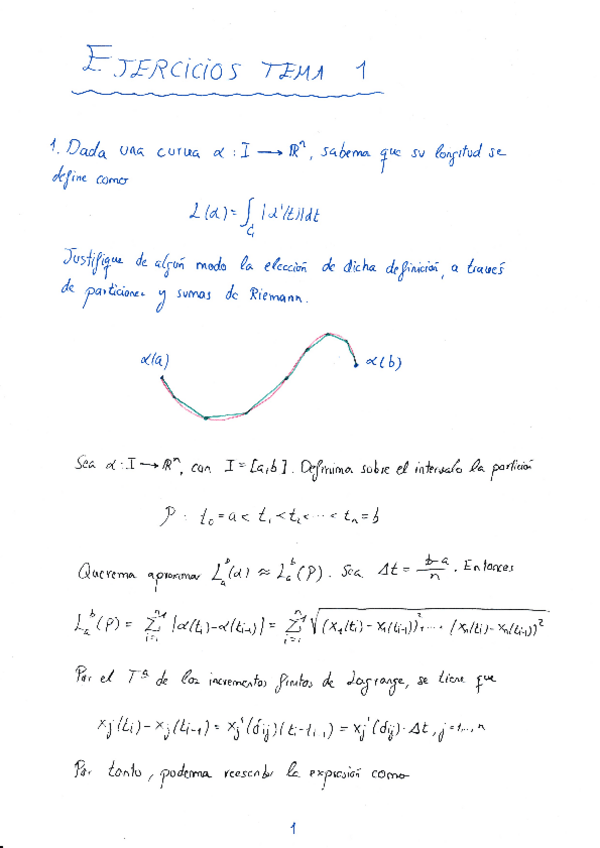 EJERCICIOS TEMA 1
1. Dada una curva α : I → ℝⁿ, sabemos que su longitud se
define como
L(α) = ∫_I |α'(t)| dt
Justifique de algún modo la elección de dicha definición, a través
de particiones y sumas de Riemann.
α(a)
α(b)
Sea α : I → ℝⁿ, con I = [a,b]. Definimos sobre el intervalo la partición
P : t₀ = a < t₁ < t₂ < ... < tₙ = b
Queremos aproximar Lₐᵇ(α) ≈ Lₐᵇ(P). Sea Δt = (b-a)/n. Entonces
Lₐᵇ(P) = Σ |α(tᵢ) - α(tᵢ₋₁)| = Σ √((x₁(tᵢ) - x₁(tᵢ₋₁))² + ... + (xₙ(tᵢ) - xₙ(tᵢ₋₁))²)
Por el Tª de los incrementos finitos de Lagrange, se tiene que
xⱼ(tᵢ) - xⱼ(tᵢ₋₁) = xⱼ'(δᵢⱼ)(tᵢ - tᵢ₋₁) = xⱼ'(δᵢⱼ) · Δt, j = 1, ..., n
Por tanto, podemos reescribir la expresión como
1